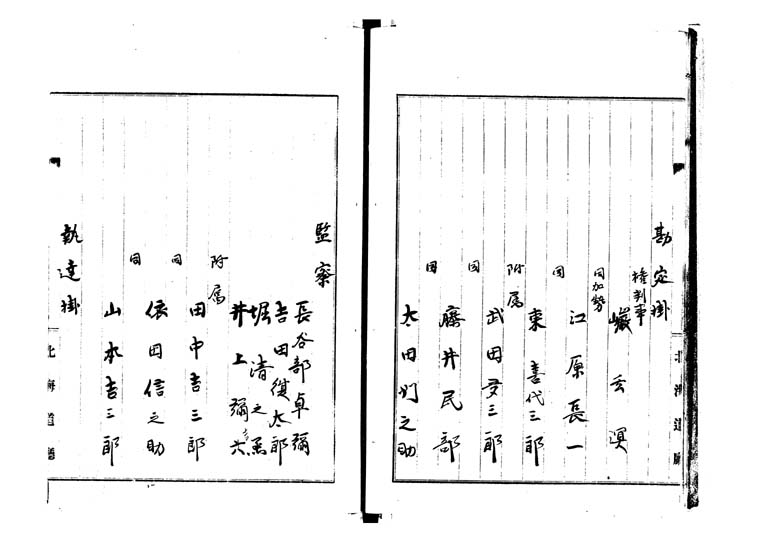 勘定掛
権判事
巌玄溟
同加勢
江原長一
同
東喜代三郎
附属
武田孝三郎
同
藤井民部
同
太田釣之助
北海道廳
監察
長谷部卓彌
吉田復太郎
堀清之
井上彌六
附属
田中吉三郎
同
依田信之助
同
山本吉三郎
執達掛
北海道廳